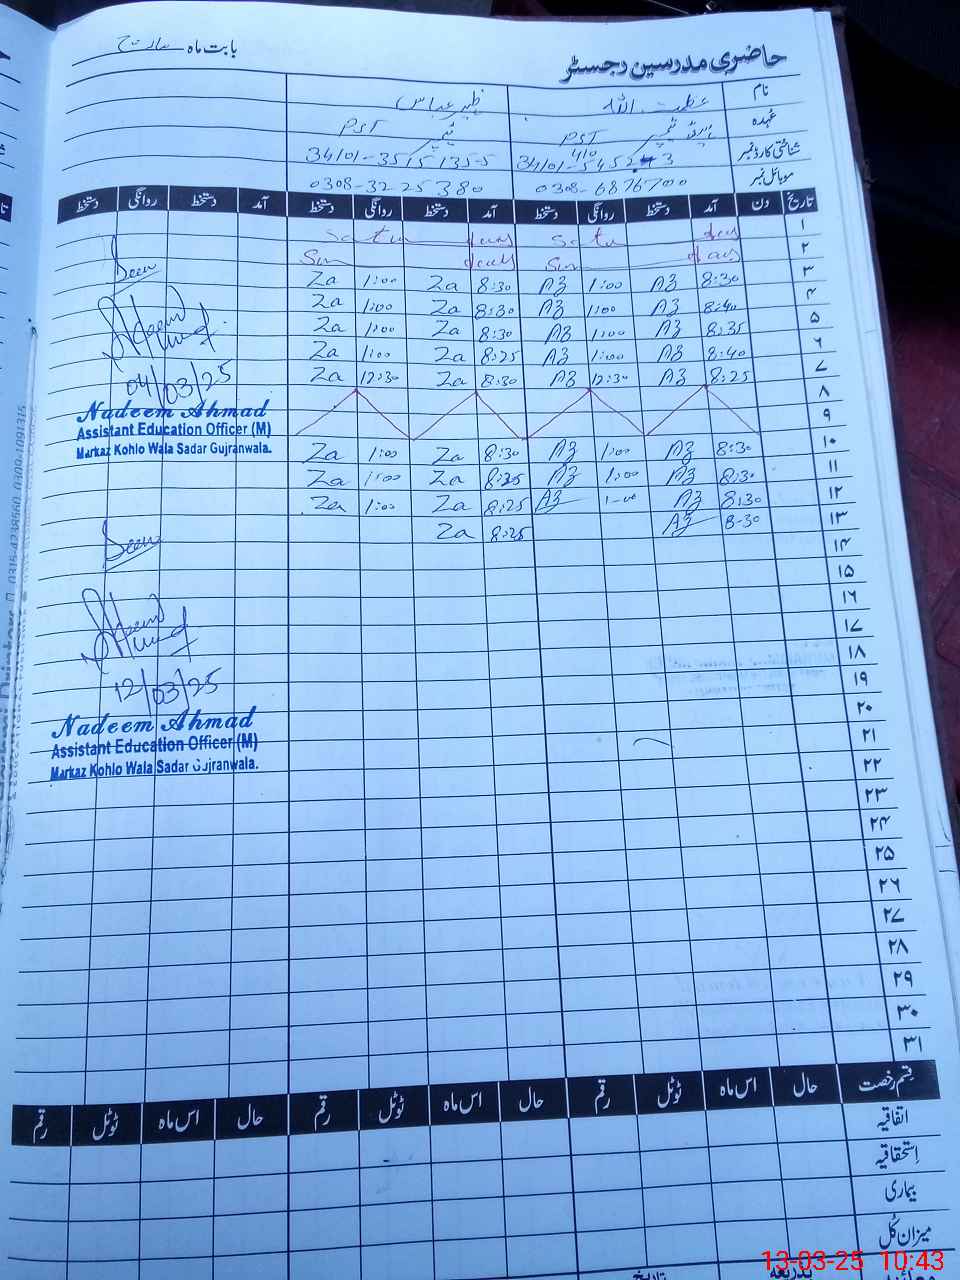 حاضری مدرسین رجسٹر
بابت ماہ مارچ
نام عظمت اللہ ظہیر عباس
عہدہ PST PST
شناختی کارڈ نمبر 34101-3515135-5
موبائل نمبر 0308-6876700 0308-3225380
تاریخ دن آمد دستخط روانگی دستخط آمد دستخط روانگی دستخط آمد دستخط روانگی دستخط
۱ Satur day Satur day
۲ Sun day Sun day
۳ 8:30 AZ 1:00 AZ 8:30 Za 1:00 Za
۴ 8:40 AZ 1:00 AZ 8:30 Za 1:00 Za
۵ 8:35 AZ 1:00 AZ 8:30 Za 1:00 Za
۶ 8:40 AZ 1:00 AZ 8:25 Za 1:00 Za
۷ 8:25 AZ 12:30 AZ 8:30 Za 12:30 Za
۸
۹
۱۰ 8:30 AZ 1:00 AZ 8:30 Za 1:00 Za
۱۱ 8:30 AZ 1:00 AZ 8:25 Za 1:00 Za
۱۲ 8:30 AZ 1-00 AZ 8:25 Za 1:00 Za
۱۳ 8-30 AZ 8:25 Za
۱۴
۱۵
۱۶
۱۷
۱۸
۱۹
۲۰
۲۱
۲۲
۲۳
۲۴
۲۵
۲۶
۲۷
۲۸
۲۹
۳۰
۳۱
Seen
04/03/25
Nadeem Ahmad
Assistant Education Officer (M)
Markaz Kohlo Wala Sadar Gujranwala.
Seen
12/03/25
Nadeem Ahmad
Assistant Education Officer (M)
Markaz Kohlo Wala Sadar Gujranwala.
قسم رخصت حال اس ماہ ٹوٹل رقم حال اس ماہ ٹوٹل رقم حال اس ماہ ٹوٹل رقم
اتفاقیہ
استحقاقیہ
بیماری
میزان کل
بذریعہ تاریخ
13-03-25 10:43